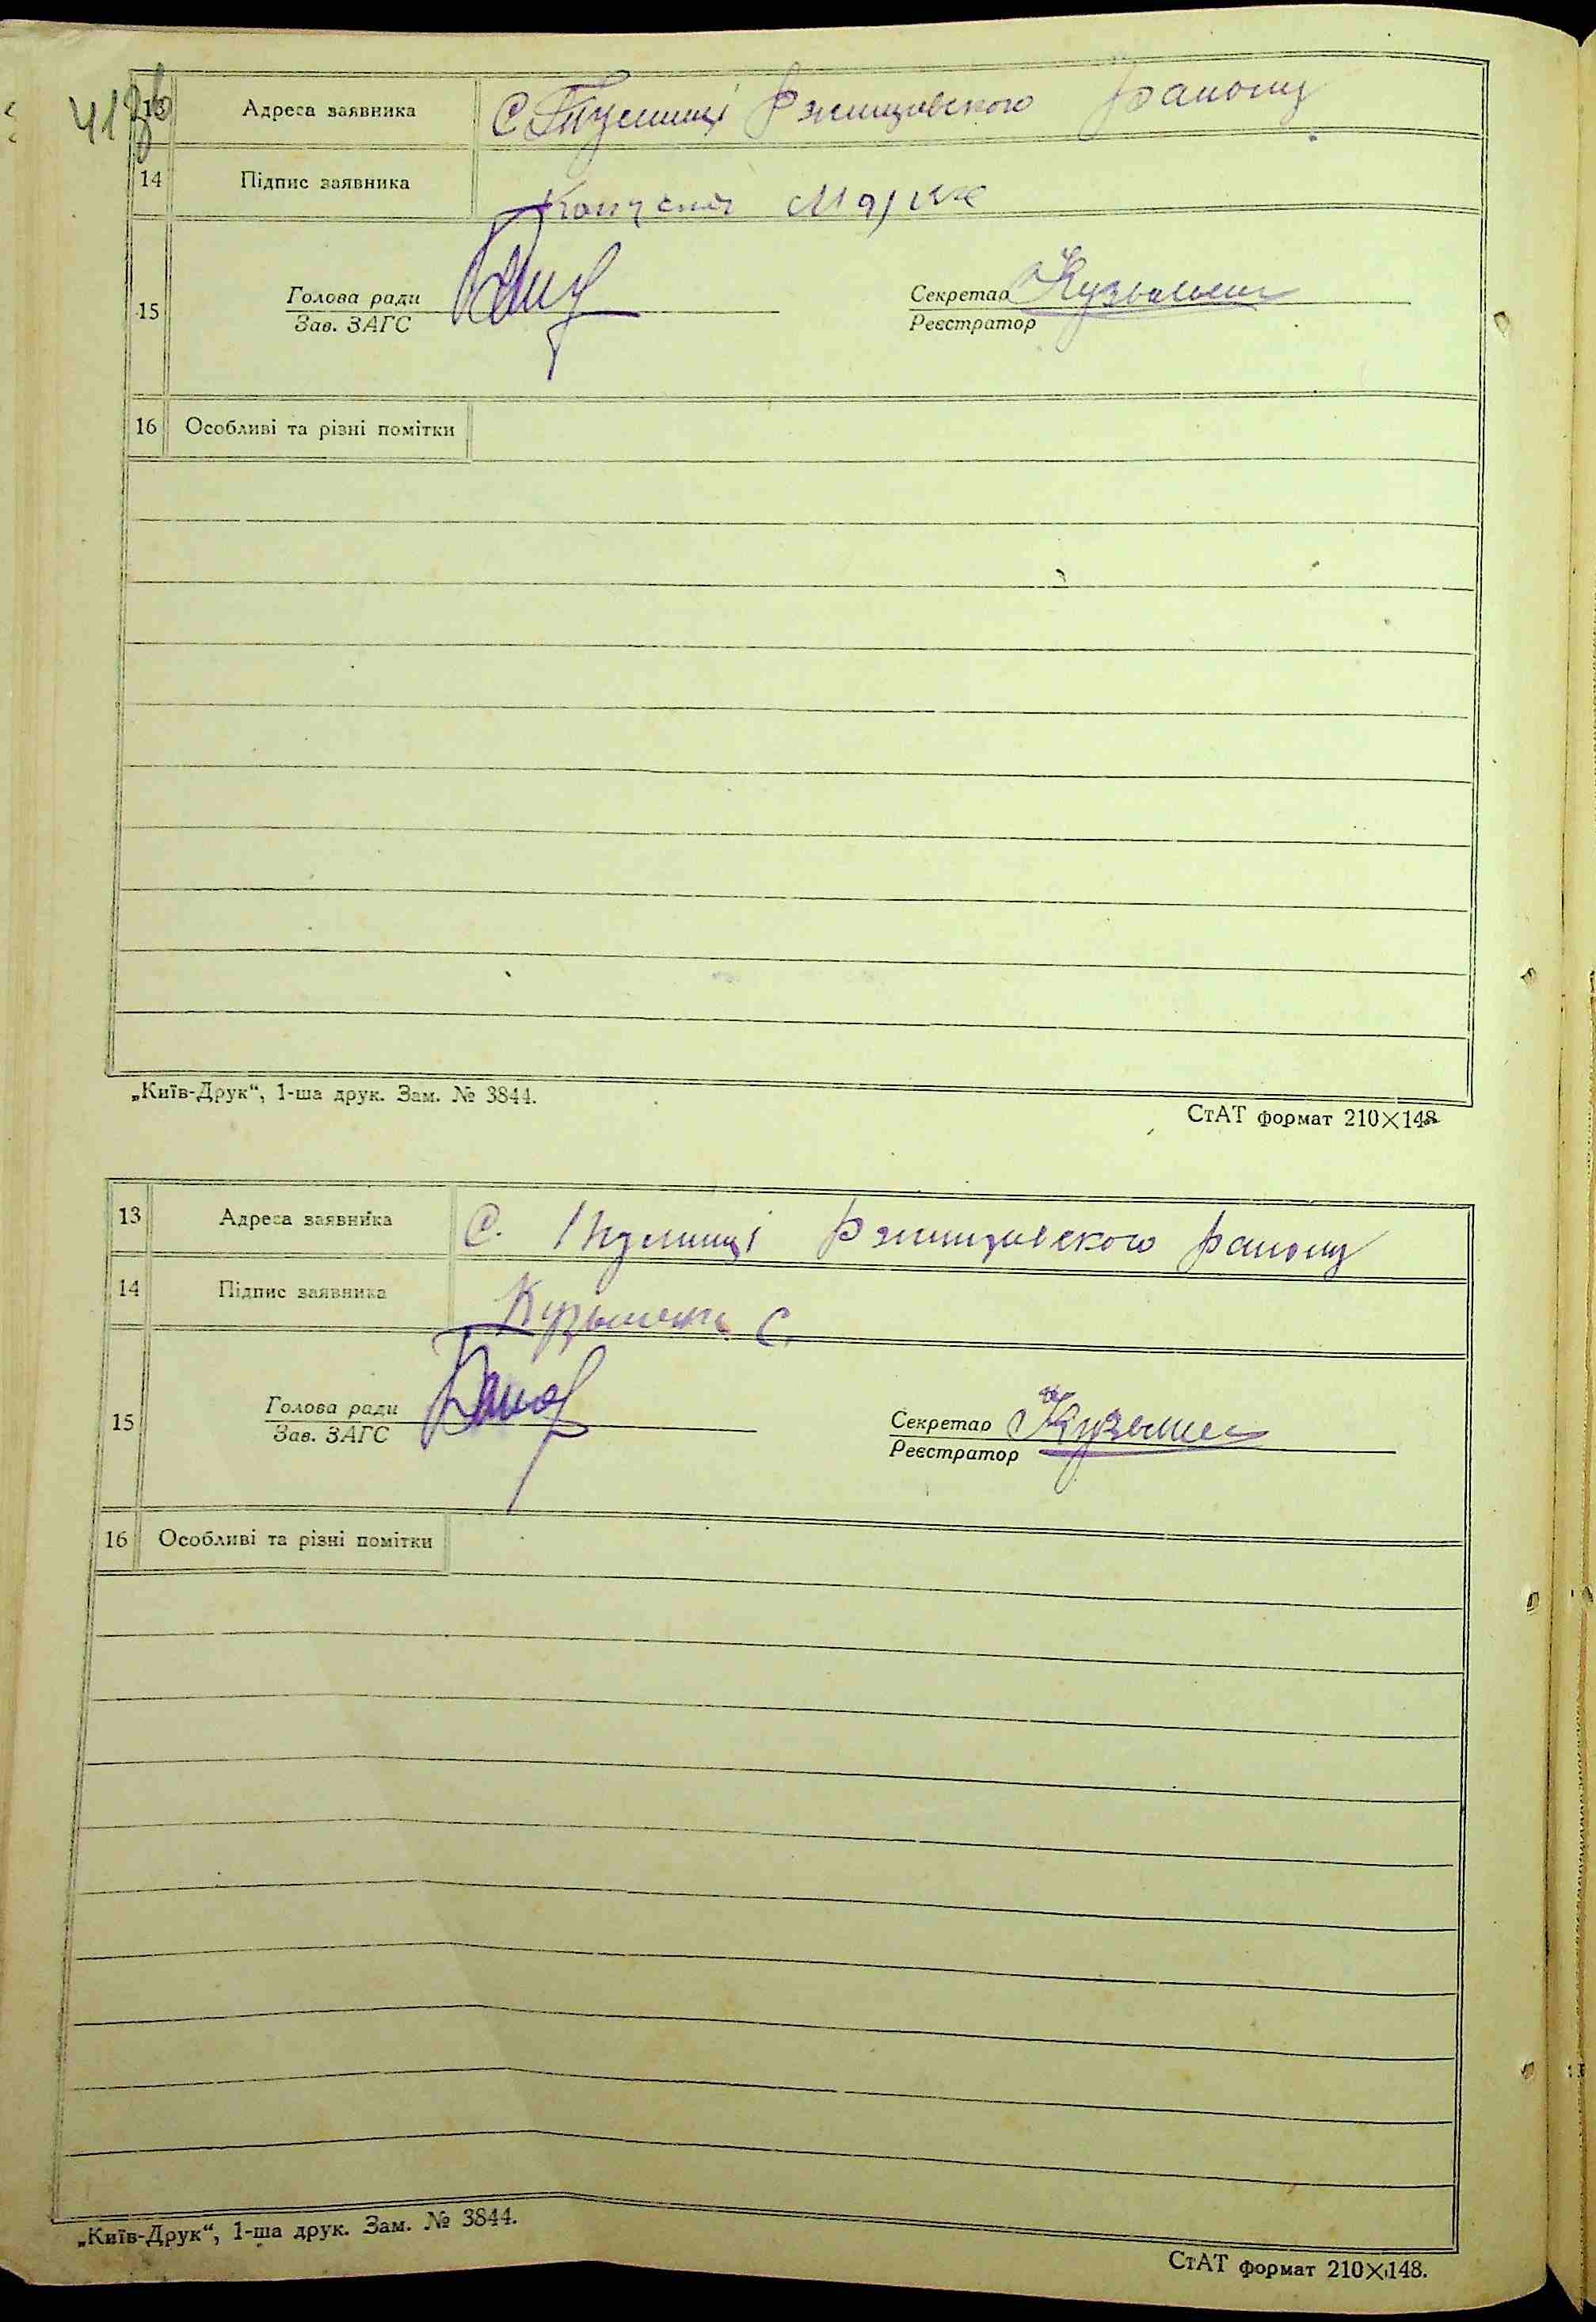 13 Адреса заявника С. Тулинці Ржищівського району
14 Підпис заявника
15 Голова ради Секретар Кузьменко
Зав. ЗАГС Реєстратор
16 Особливі та різні помітки
„Київ-Друк“, 1-ша друк. Зам. № 3844.
СтАТ формат 210×148
13 Адреса заявника С. Тулинці Ржищівського району
14 Підпис заявника Кузьменко С.
15 Голова ради Секретар Кузьменко
Зав. ЗАГС Реєстратор
16 Особливі та різні помітки
„Київ-Друк“, 1-ша друк. Зам. № 3844.
СтАТ формат 210×148.